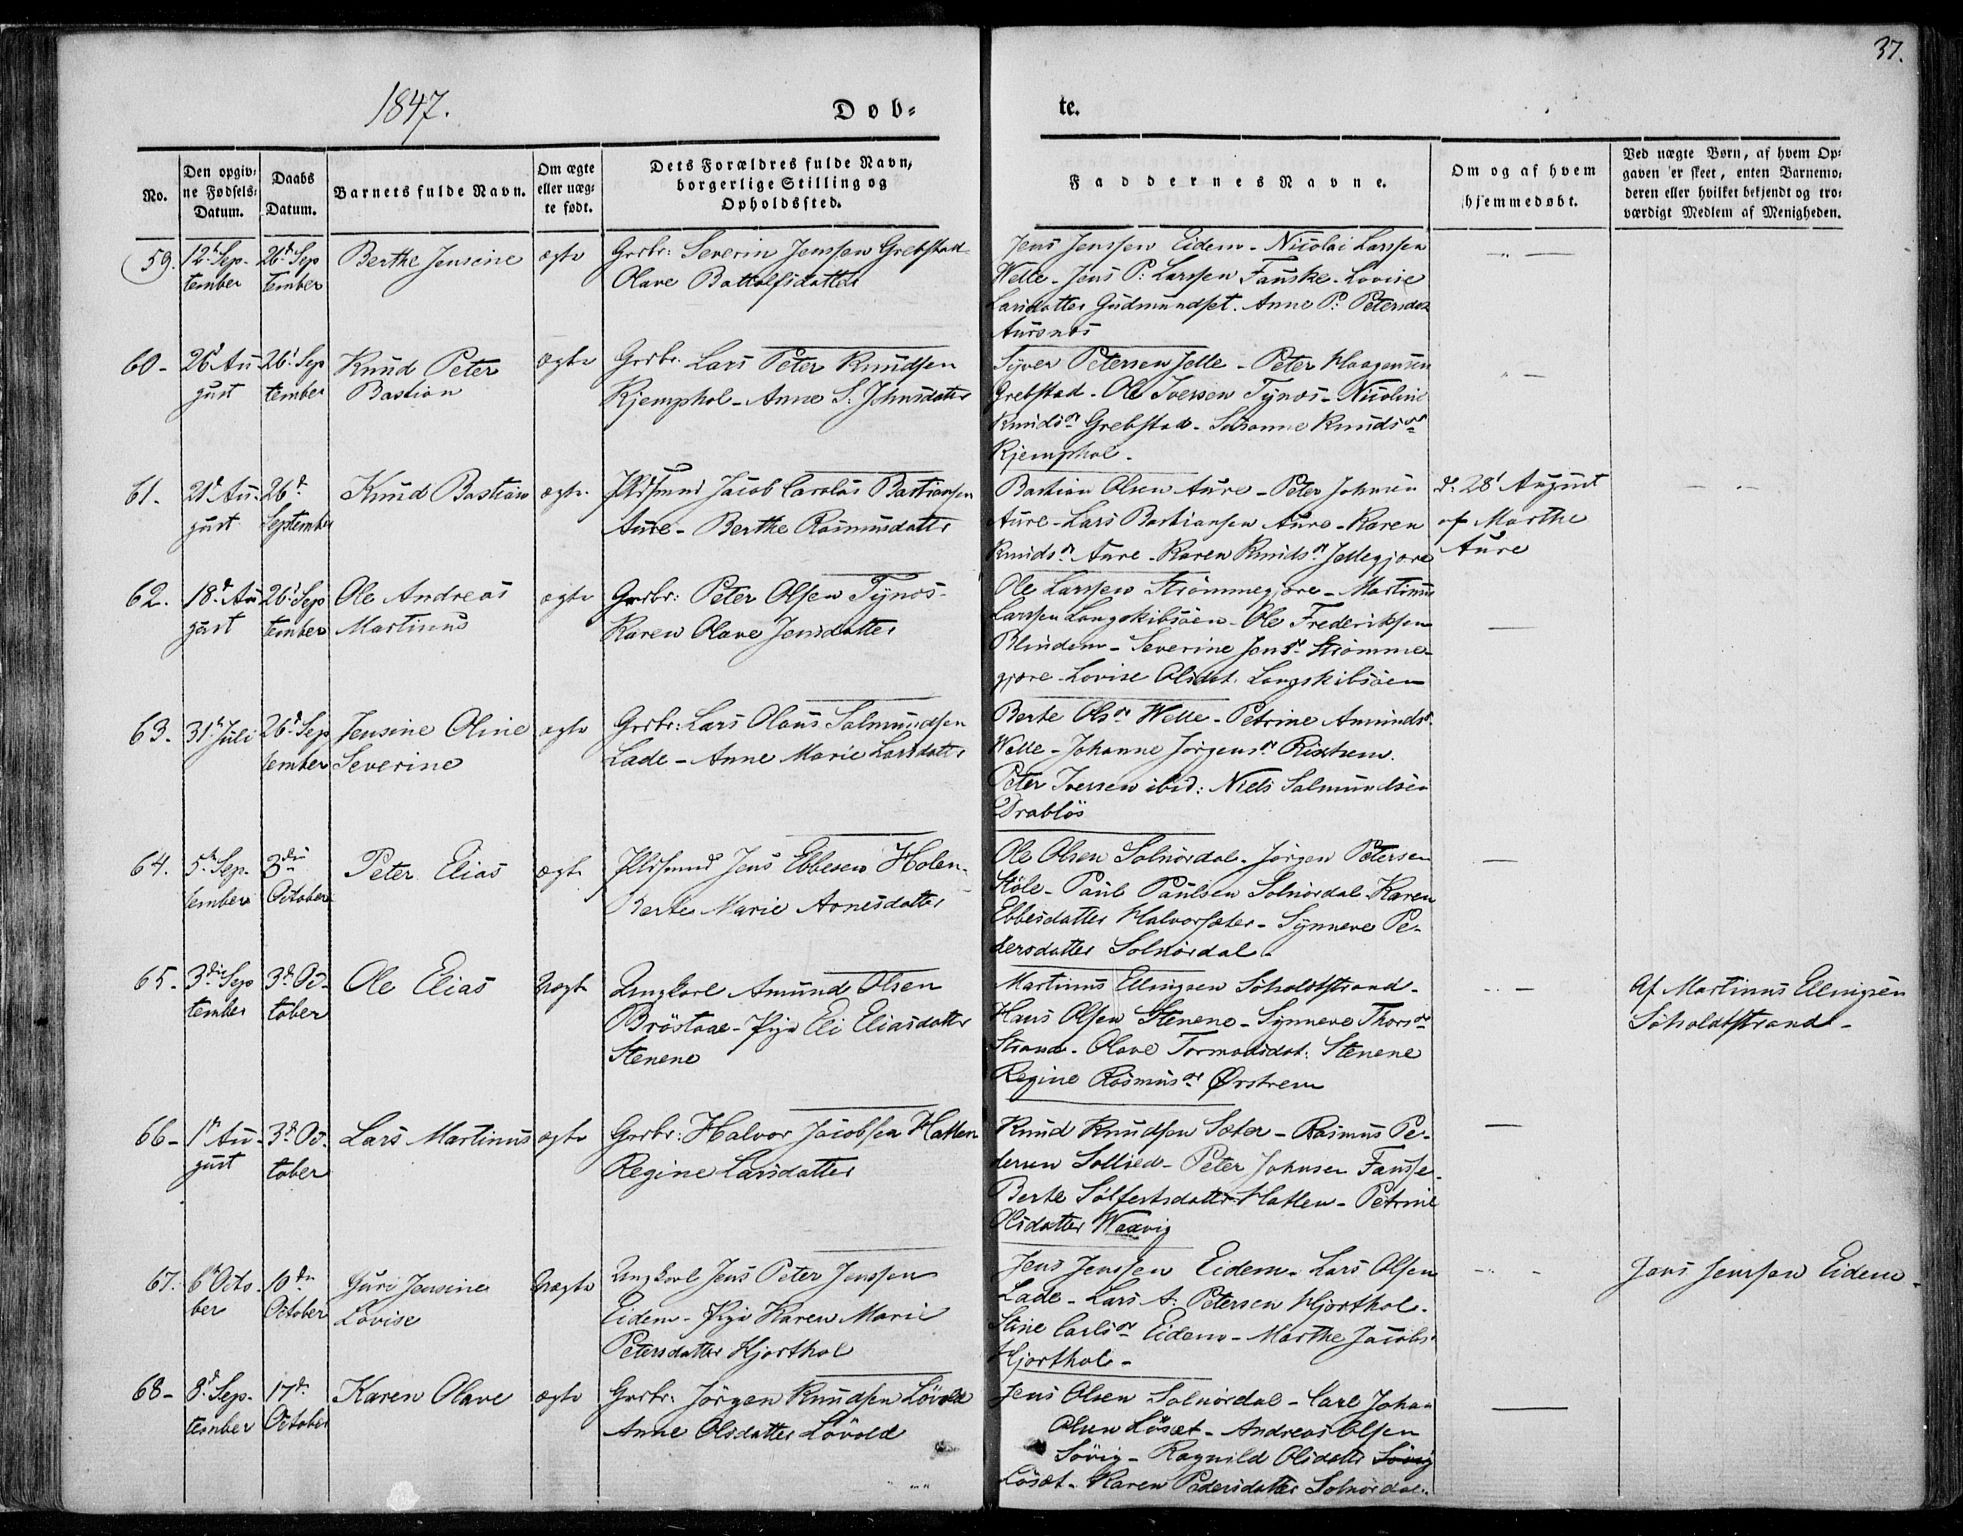 37.
1847.
Døb-
te.
No.
Den opgiv-
ne Fødsels-
Datum.
Daabs
Datum.
Barnets fulde Navn.
Om ægte
eller uæg-
te født.
Dets Forældres fulde Navn,
borgerlige Stilling og
Opholdssted.
Faddernes Navne.
Om og af hvem
hjemmedøbt.
Ved uægte Børn, af hvem Op-
gaven er skeet, enten Barnemo-
deren eller hvilket bekjendt og tro-
værdigt Medlem af Menigheden.
59.
12t Sep-
tember
26d Sep
tember
Berthe Jensine
ægte
Grdbr: Severin Jenssen Grebstad
Olave Bottolfsdatter
Jens Jenssen Eidem - Nicolai Larssen
Welle - Jens P: Larssen Fauske - Lovise
Larsdatter Gudmundset. Anne P: Petersdat
Aursnes
60-
26d Au-
gust
26d Sep
tember
Knud Peter
Bastian
ægte
Grdbr. Lars Peter Knudsen
Kjemphol - Anne S. Johnsdatter
Syver Petersen Jelle - Peter Haagensen
Grebstad - Ole Iversen Tynes - Nicoline
Knudsdr Grebstad - Susanne Knudsdr
Kjemphol.
61.
21d Au-
gust
26d
September
Knud Bastian
ægte.
Huusmand Jacob Carolus Bastiansen
Aure - Berthe Rasmusdatter
Bastian Olsen Aure - Peter Johnsen
Aure - Lars Bastiansen Aure - Karen
Knudsdr Aure - Karen Knudsdr Jellegjære
d: 28d August
af Marthe
Aure
62.
18d Au
gust
26d Sep
tember
Ole Andreas
Martinus
ægte
Grdbr: Peter Olsen Tynes-
Karen Olave Jensdatter
Ole Larssen Strømmegjære - Martinus
Larssen Langskibsøen - Ole Frederiksen
Blindem - Severine Jensdr Strømme-
gjære - Lovise Olsdat. Langskibsøen
63-
31t Juli
26d Sep
tember
Jensine Oline
Severine
ægte
Grdbr: Lars Olaus Salmundsen
Lade - Anne Marie Larsdatter
Berte Olsdr Welle - Petrine Amundsdr
Welle - Johanne Jørgensdr Rixtrem.
Peter Iversen ibid: Niels Salmundsen
Drabløs
64.
5te Sep-
tember
3die
October
Peter Elias
ægte
Huusmand Jens Ebbesen Holen-
Berte Marie Arnesdatter
Ole Olsen Solnørdal - Jørgen Petersen
Støle - Paul Paulsen Solnørdal - Karen
Ebbesdatter Halvorsæter - Synneve Pe-
dersdatter Solnørdal.
65-
3die Sep
tember
3d Oc-
tober
Ole Elias
Uægte
Ungkarl Amund Olsen
Brøstad - Pige Eli Eliasdatter
Stenene
Martinus Ellingsen Søholdtstrand-
Hans Olsen Stenene - Synneve Thorsdr
Strand - Olave Tormodsdat: Stenene
Regine Rasmusdr Ørstrem
Af Martinus Ellingsen
Søholdtstrand-
66-
1t Au-
gust
3d Oc-
tober
Lars Martinus
ægte
Grdbr: Halvor Jacobsen Hatlen
Regine Larsdatter
Knud Knudsen Sæter - Rasmus Pe-
dersen Sollied - Peter Johnsen Fauske-
Berte Sølfestsdatter Hatlen - Petrine
Olsdatter Waavig
67.
6t Octo-
ber
10de
October
Guri Jensine
Lovise
Uægte
Ungkarl Jens Peter Jenssen
Eidem - Pige Karen Marie
Petersdatter Hjorthol
Jens Jenssen Eidem - Lars Olsen
Lade - Lars A: Petersen Hjorthol-
Stine Carlsdr Eidem - Marthe Jacobsdr
Hjorthol-
Jens Jenssen Eidem-
68-
8d Sep-
tember
17d
October
Karen Olave
ægte
Grdbr: Jørgen Knudsen Løvold
Anne Olsdatter Løvold
Jens Olsen Solnørdal - Carl Johan
Olsen Løset - Andreas Olsen
Søvig - Ragnild Olsdatter Søvig
Løset - Karen Pedersdatter Solnørdal.